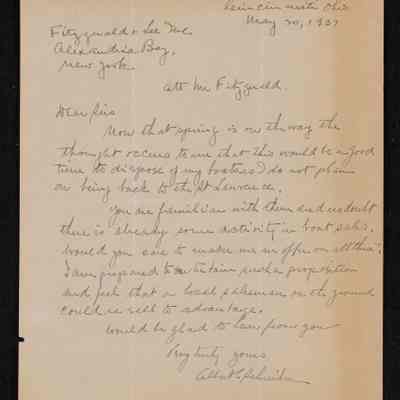 Cincinnati Ohio
May 20, 1921
Fitzgerald & Lee Inc.
Alexandria Bay,
New York.
Att Mr Fitzgerald.
Dear Sirs
Now that spring is on the way the
thought occurs to me that this would be a good
time to dispose of my boats as I do not plan
on being back to the St Lawrence.
You are familiar with them and no doubt
there is already some activity in boat sales.
Would you care to make me an offer on all this?
I am prepared to entertain such a proposition
and feel that a local salesman on the ground
could re sell to advantage.
Would be glad to hear from you
Very truly yours
Albert